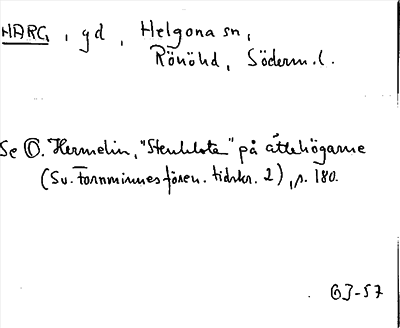 HARG, gd, Helgona sn,
Rönöhd, Söderm.l.
Se O. Hermelin, "Stenklota" på ättehögarne
(Sv. Fornminnesfören. tidskr. 2), p. 180.
GJ-57